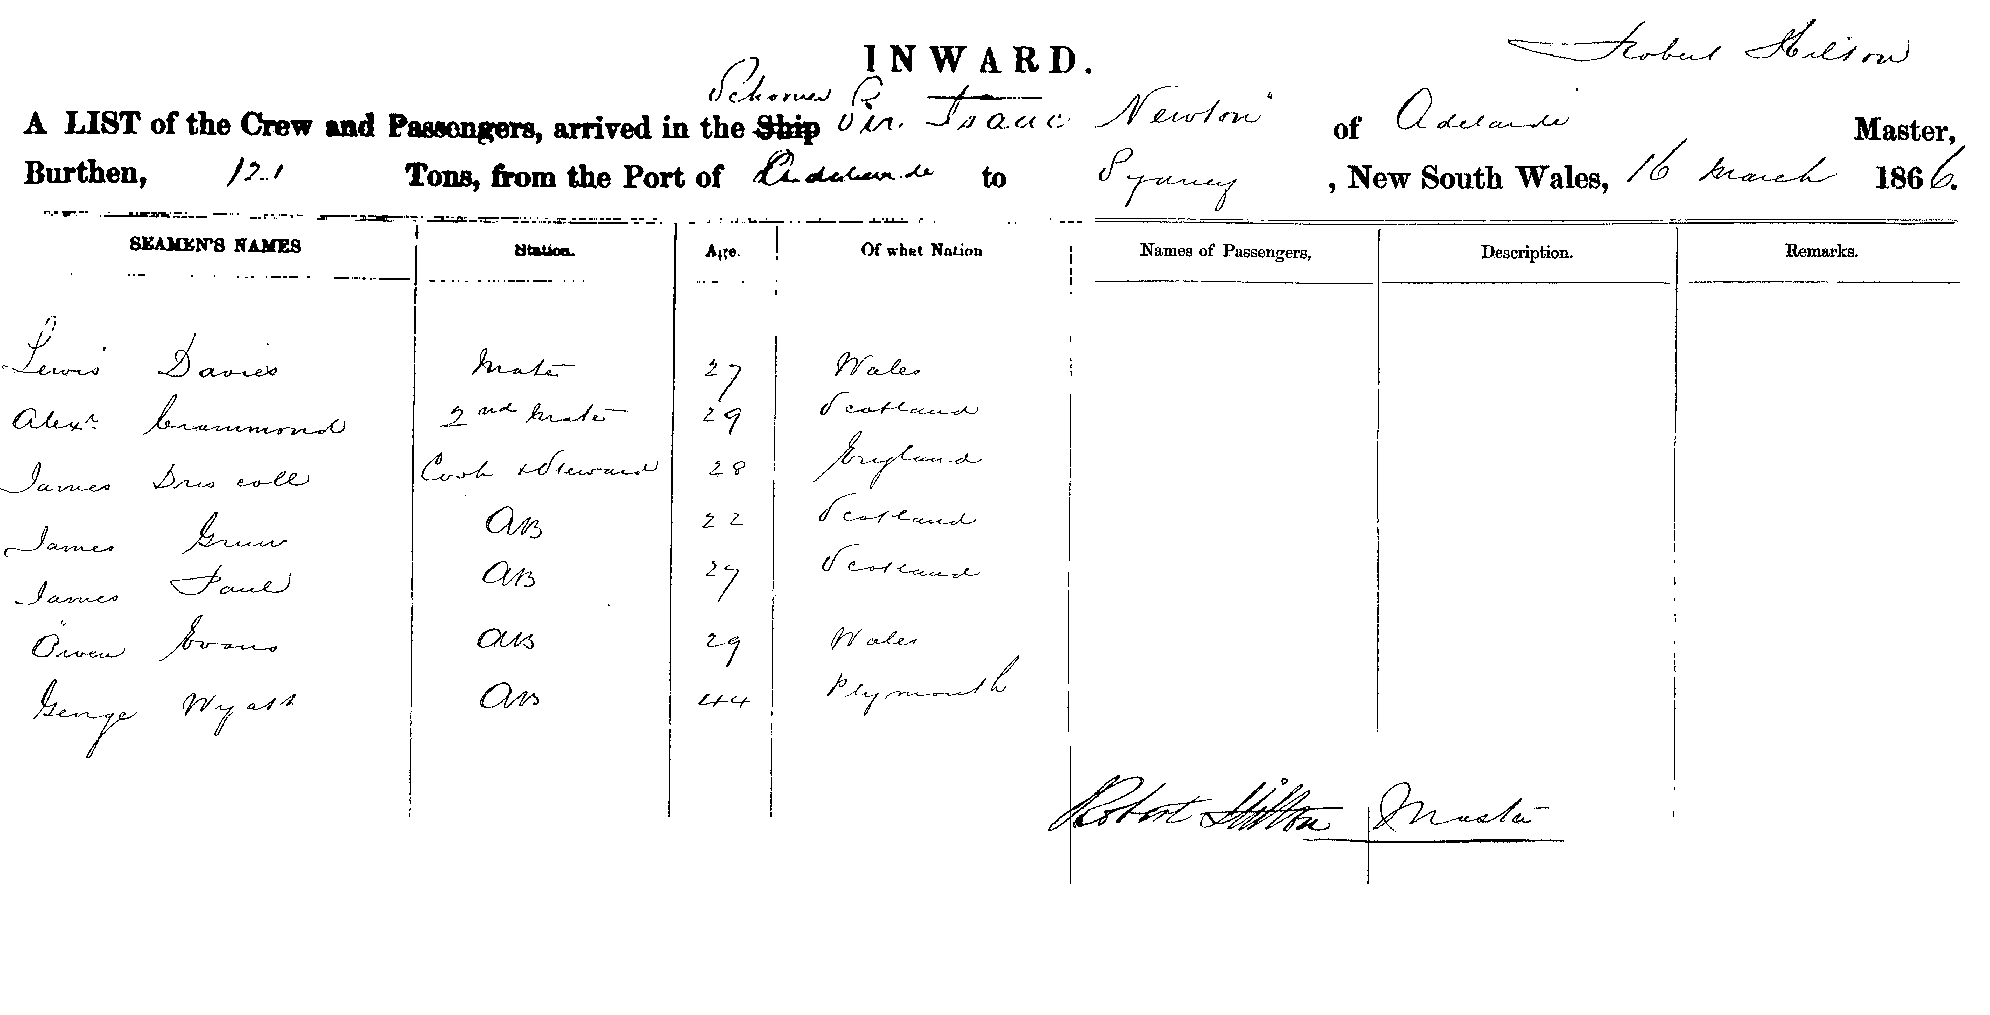 INWARD.
Robert Hilton
Schooner
A LIST of the Crew and Passengers, arrived in the Ship Sir. Isaac Newton" of Adelaide Master,
Burthen, 121 Tons, from the Port of Adelaide to Sydney, New South Wales, 16 March 1866.
SEAMEN'S NAMES Station. Age. Of what Nation Names of Passengers, Description. Remarks.
Lewis Davies Mate 27 Wales
Alexr. Crammond 2nd Mate 29 Scotland
James Driscoll Cook & Steward 28 England
James AB 22 Scotland
James Paul AB 27 Scotland
Owen Evans AB 29 Wales
George Wyatt AB 44 Plymouth
Robert Hilton Master